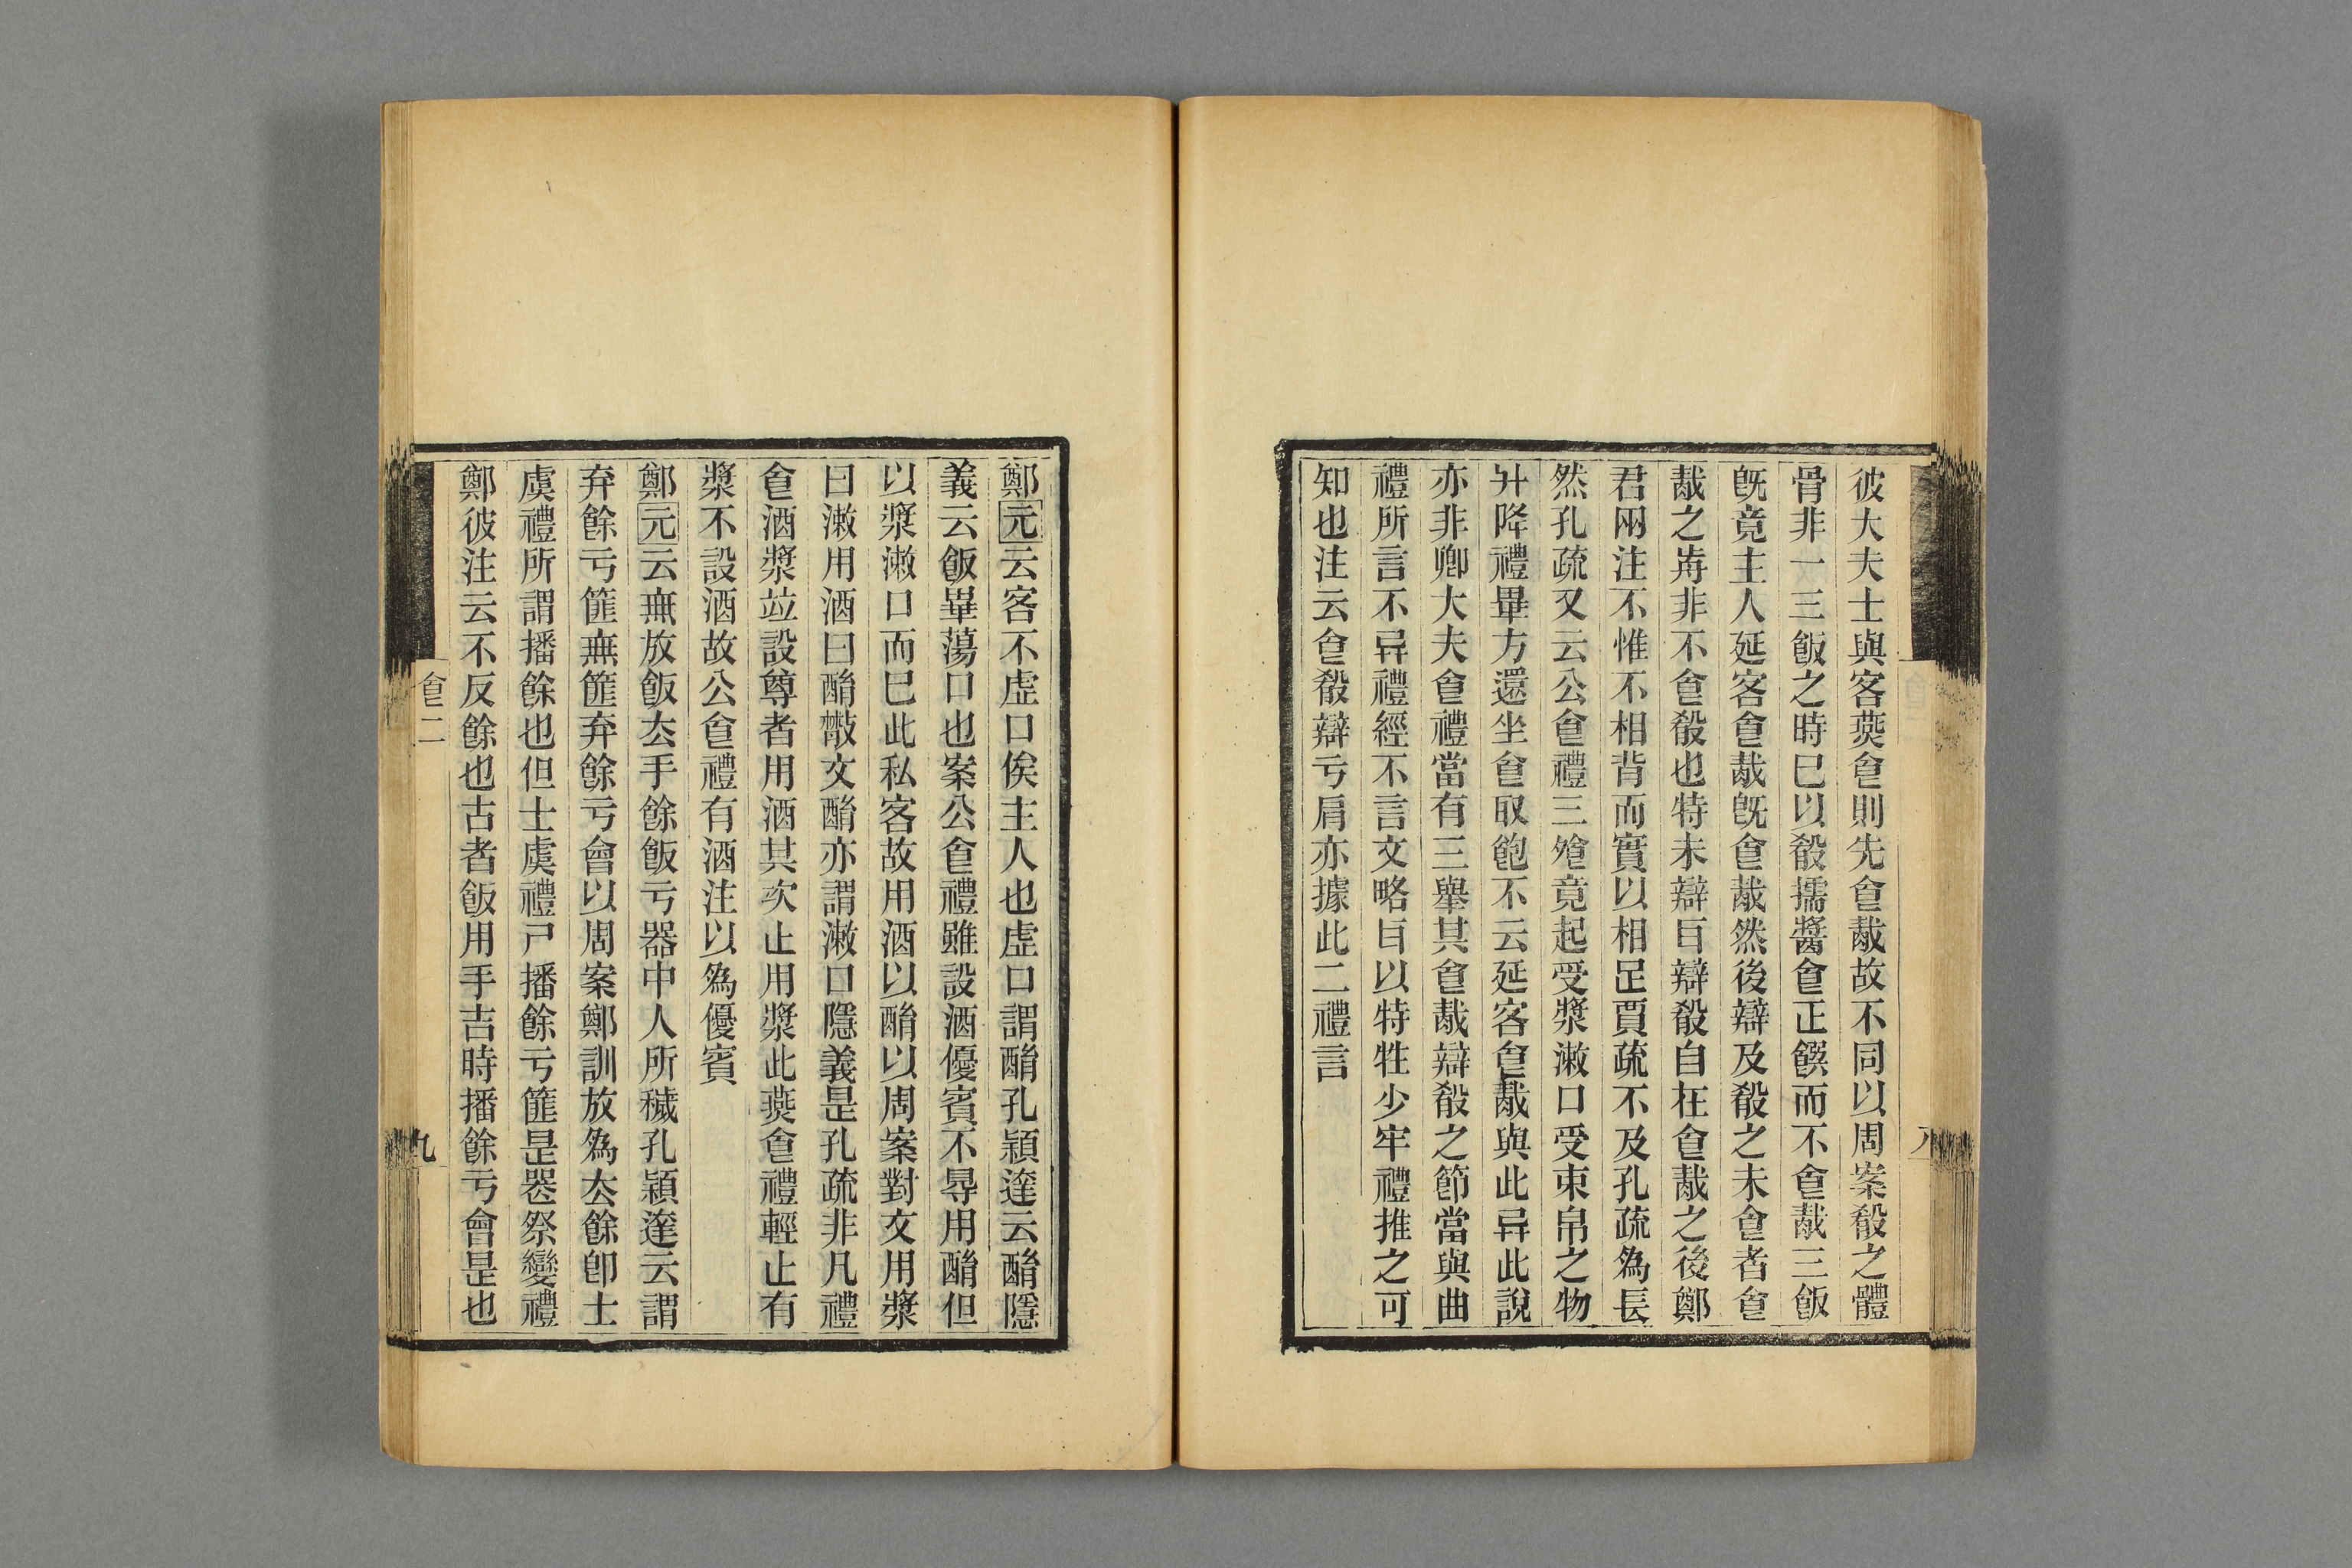 彼大夫士與客燕𠊊則先𠊊胾故不同以周案殽之體
骨非一三飯之時已以殽擩醬𠊊正饌而不𠊊胾三飯
旣竟主人延客𠊊胾旣𠊊胾然後辯及殽之未𠊊者𠊊
胾之歬非不𠊊殽也特未辯㠯辯殽自在𠊊胾之後鄭
君兩注不惟不相背而實以相足賈疏不及孔疏爲長
然孔疏又云公𠊊禮三飧竟起受漿漱口受束帛之物
升降禮畢方還坐𠊊取飽不云延客𠊊胾與此异此說
亦非卿大夫𠊊禮當有三舉其𠊊胾辯殽之節當與曲
禮所言不异禮經不言文略㠯以特牲少牢禮推之可
知也注云𠊊殽辯亏肩亦據此二禮言
八
鄭元云客不虛口俟主人也虛口謂酳孔穎達云酳隱
義云飯畢蕩口也案公𠊊禮雖設酒優賓不㝵用酳但
以漿漱口而已此私客故用酒以酳以周案對文用漿
曰漱用酒曰酳散文酳亦謂漱口隱義是孔疏非凡禮
𠊊酒漿竝設尊者用酒其次止用漿此燕𠊊禮輕止有
漿不設酒故公𠊊禮有酒注以爲優賓
鄭元云無放飯厺手餘飯亏器中人所穢孔穎達云謂
弃餘亏篚無篚弃餘亏會以周案鄭訓放爲厺餘卽士
虞禮所謂播餘也但士虞禮尸播餘亏篚是器祭變禮
鄭彼注云不反餘也古者飯用手吉時播餘亏會是也
𠊊二
九